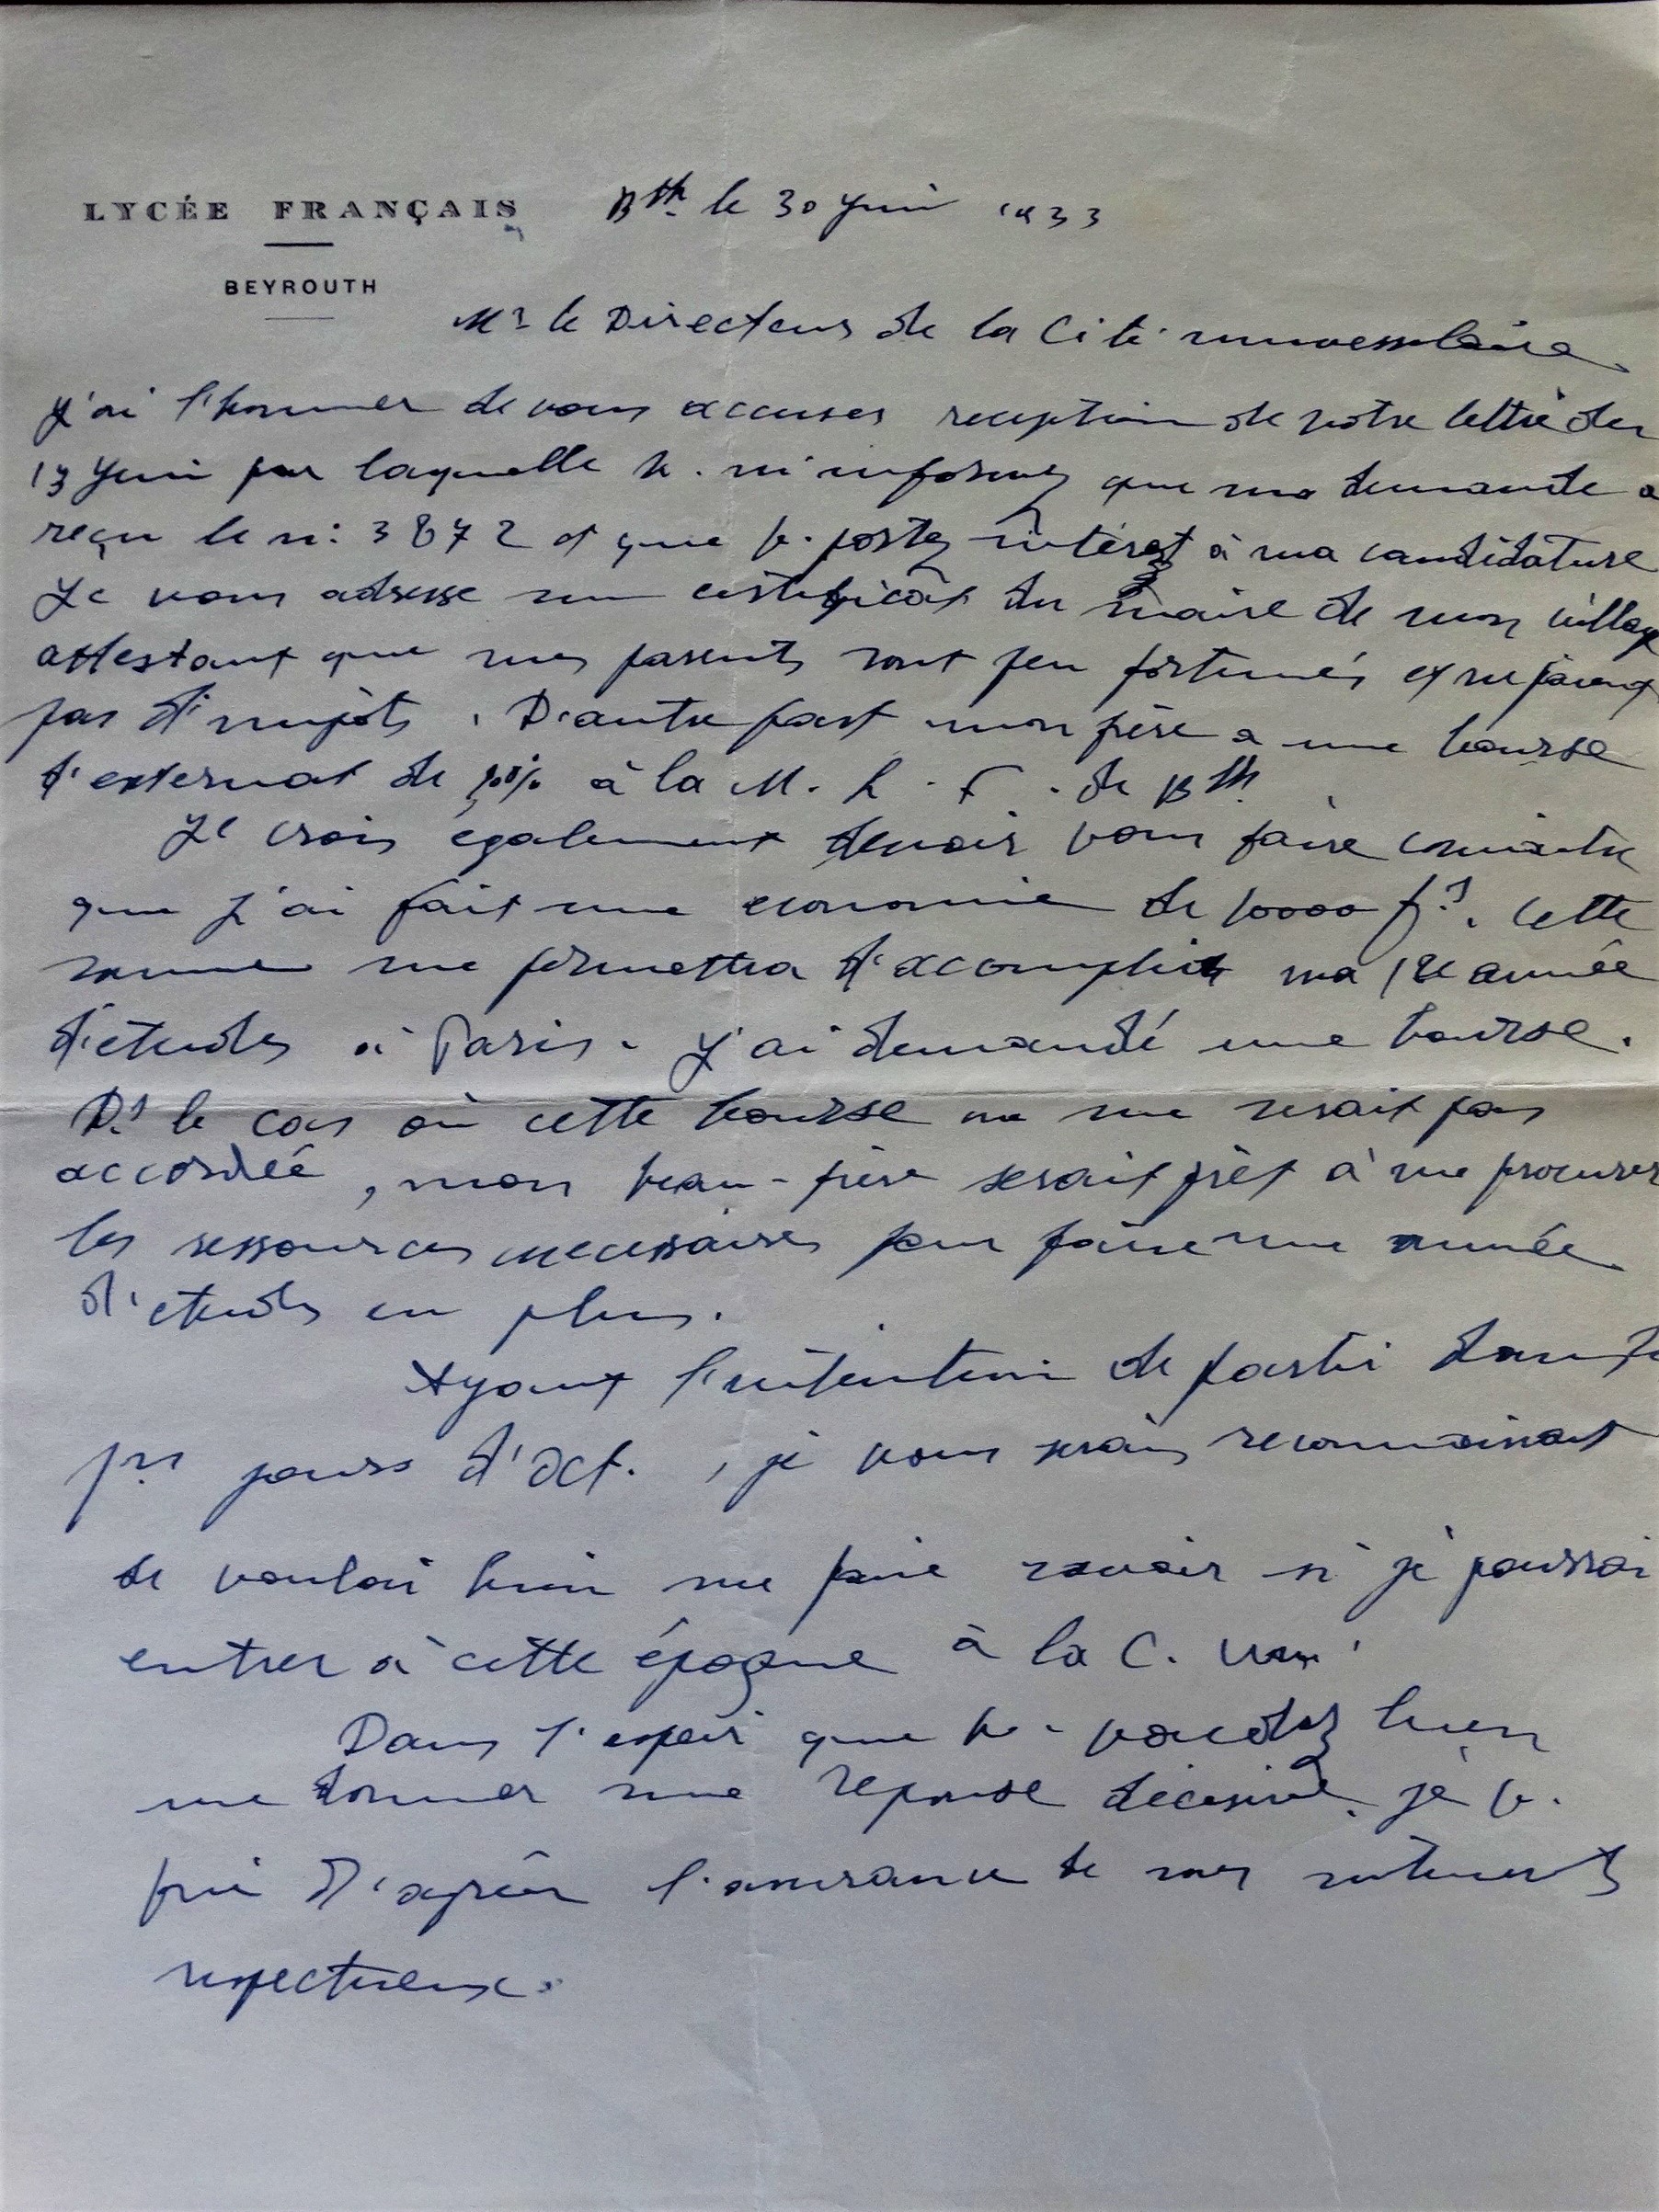 LYCÉE FRANÇAIS
BEYROUTH
Bth. le 30 Juin 1933
Mr le Directeur de la Cité universitaire
J'ai l'honneur de vous accuser reception de votre lettre du
13 Juin par laquelle v. m'informez que ma demande a
reçu le n: 3872 et que v. portez intérêt à ma candidature
Je vous adresse un certificat du maire de mon village
attestant que mes parents sont peu fortunés et ne paient
pas d'impôts. D'autre part mon frère a une bourse
d'externat de % à la M. L. F. de Bth.
Je crois également devoir vous faire connaitre
que j'ai fait une economie de 10000 frs. Cette
somme me permettra d'accomplir ma 1re année
d'études à Paris. J'ai demandé une bourse.
Ds le cas où cette bourse ne me serait pas
accordée, mon beau-frère serait prêt à me procurer
les ressources necessaires pour faire une année
d'etudes en plus.
Ayant l'intention de partir dans
prs jours d'oct., je vous serais reconnaissant
de vouloir bien me faire savoir si je pourrai
entrer à cette époque à la C. Uni.
Dans l'espoir que v. voudrez bien
me donner une reponse décisive, je v.
prie d'agréer l'assurance de mes sentiments
respectueux.